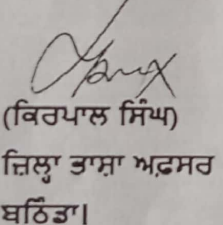 (ਕਿਰਪਾਲ ਸਿੰਘ)
ਜ਼ਿਲ੍ਹਾ ਭਾਸ਼ਾ ਅਫ਼ਸਰ
ਬਠਿੰਡਾ|